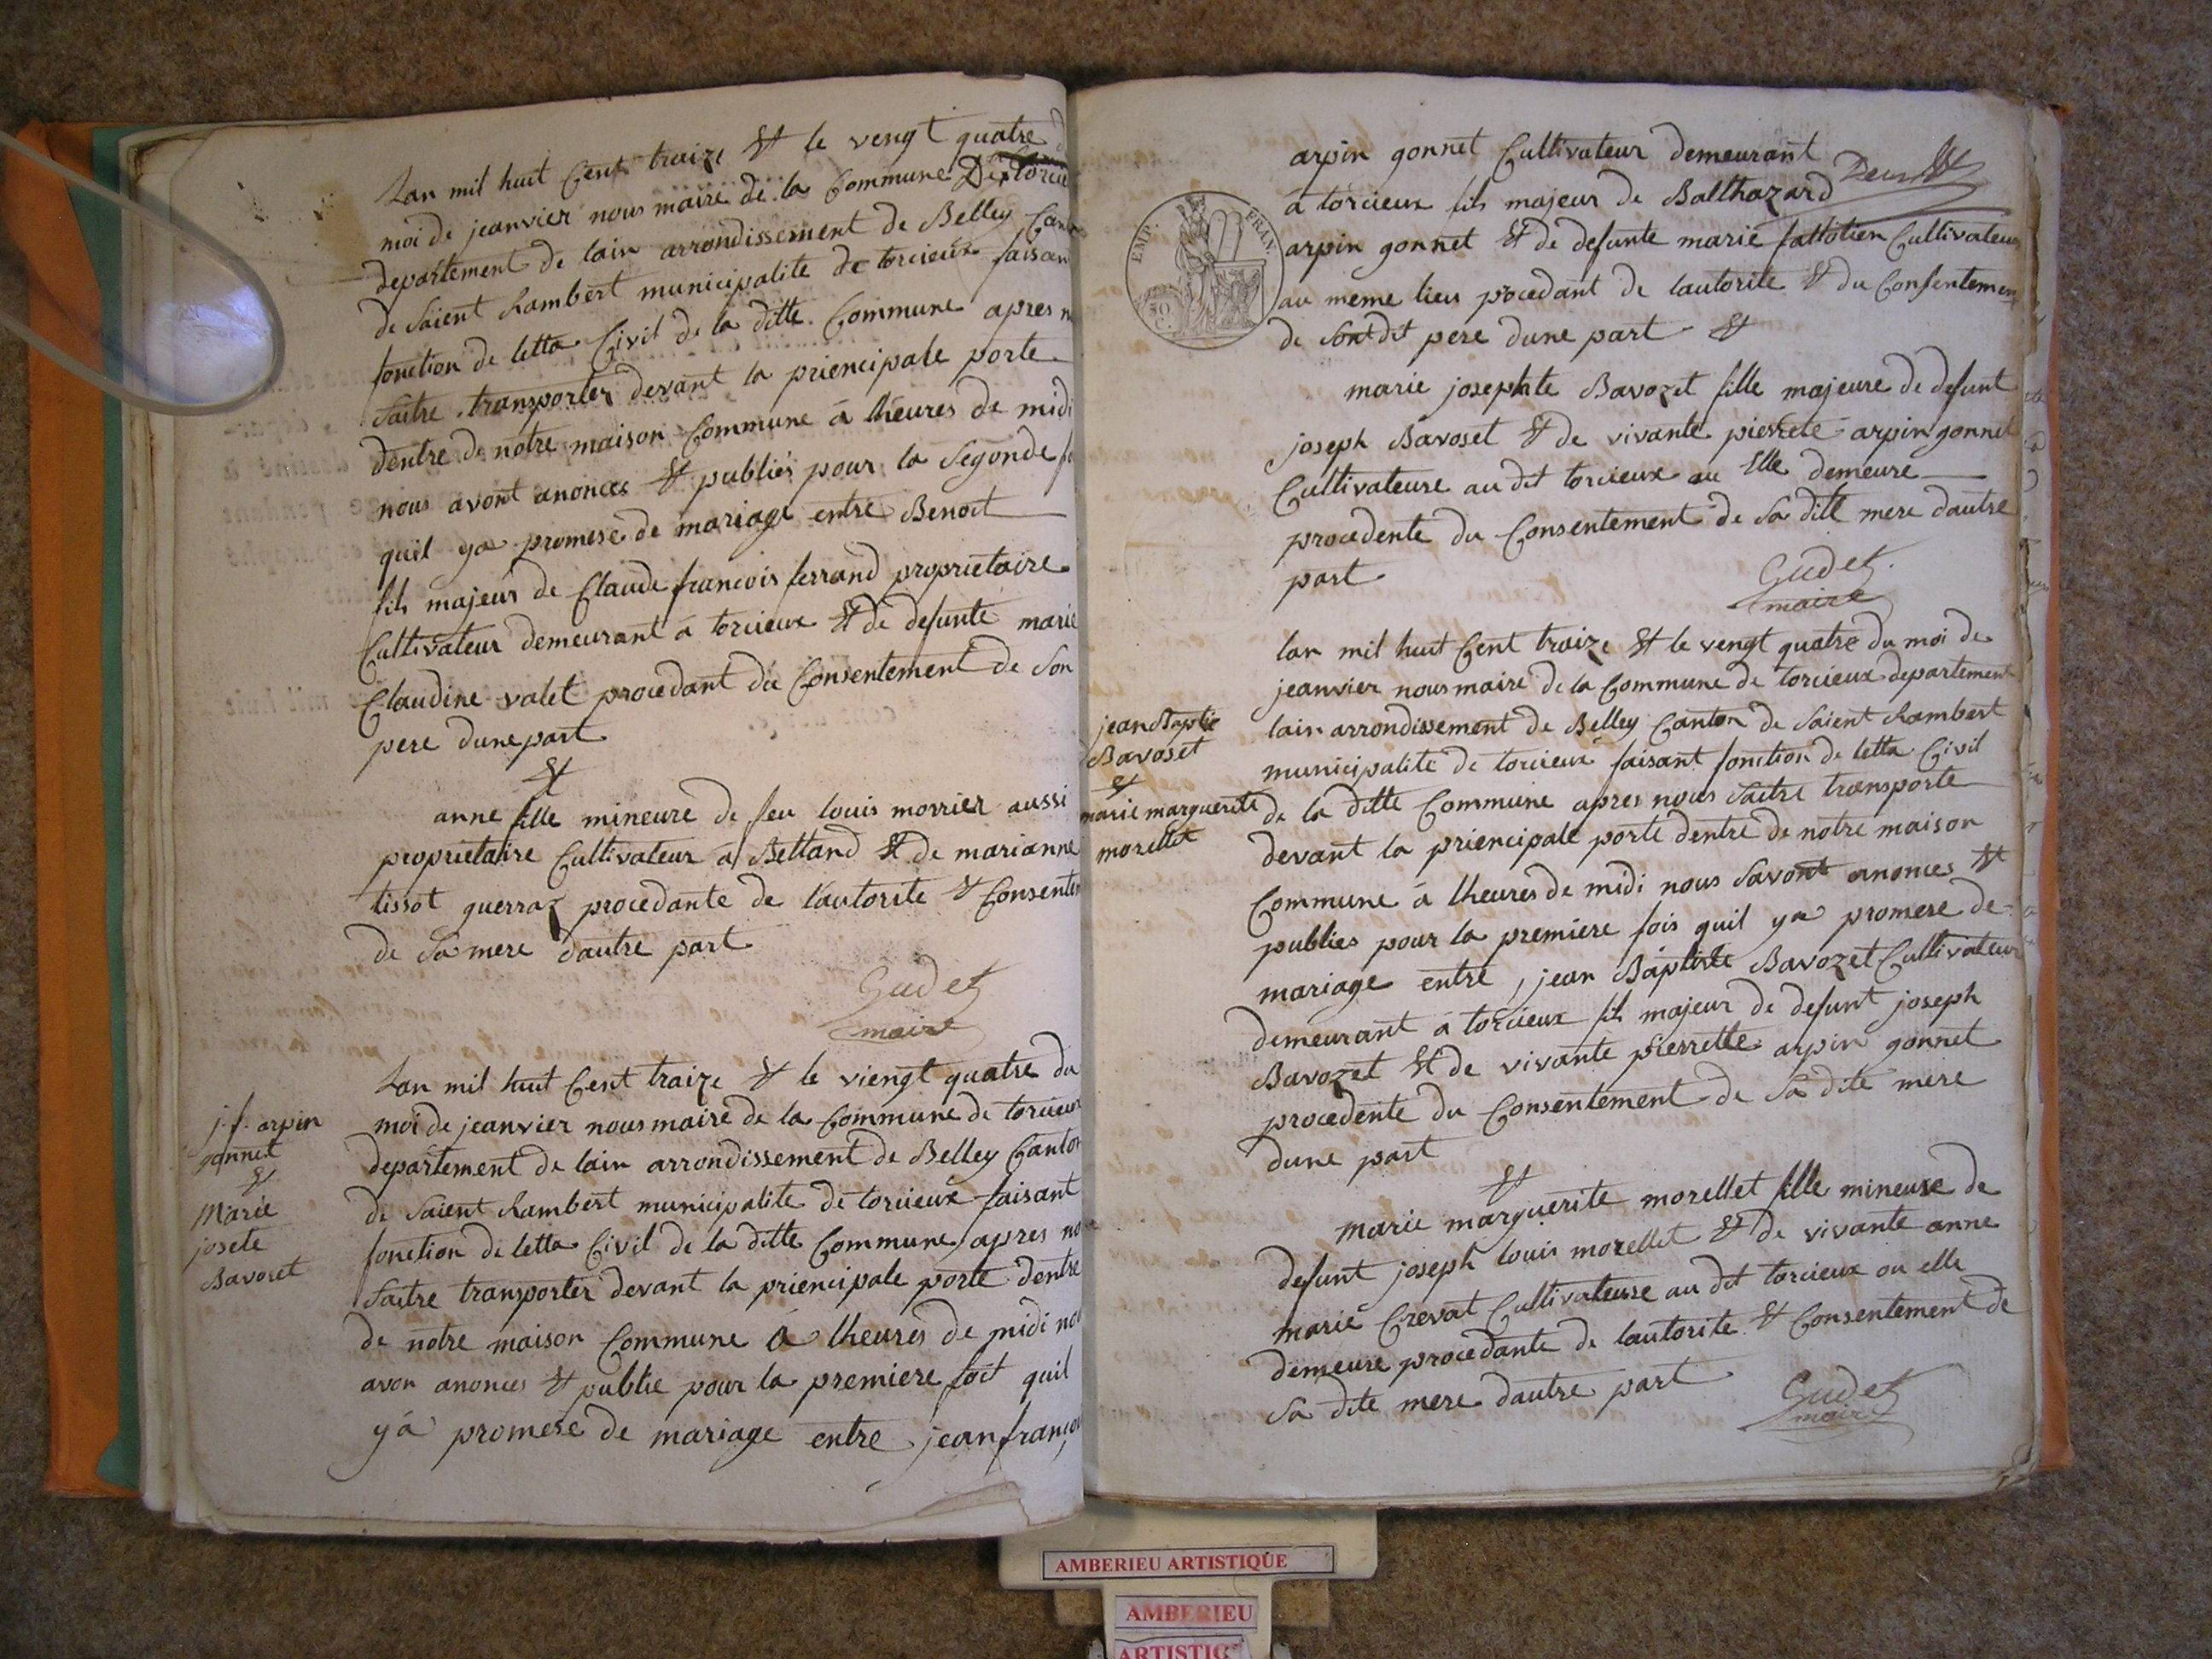 Lan mil huit Cent traize Et le vengt quatre
moi de jeanvier nous maire de la Commune De torcieu
departement de lain arrondissement de Belley Can
de Saient Rambert municipalite de torcieux faisan
fonction de letta Civil de la ditte Commune apres n
Saitre transporter devant la priencipale porte
dentre de notre maison Commune á lheures de midi
nous avont anonces Et publiés pour la Segonde fo
quil ya promese de mariage entre Benoit
fils majeur de Claude francois ferrand proprietaire
Cultivateur demeurant á torcieux Et de defunte marie
Claudine valet procedant du Consentement de Son
pere dune part
Et
anne fille mineure de feu louis morrier aussi
proprietaire Cultivateur á Bettand Et de marianne
tissot guerraz procedante de lautorite Et Consentem
de Sa mere dautre part
Gudet
maire
j. f. arpin
gonnet
&
Marie
josete
Bavoset
Lan mil huit Cent traize Et le viengt quatre du
moi de jeanvier nous maire de la Commune de torcieux
departement de lain arrondissement de Belley Canton
de Saient Rambert municipalite de torcieux faisant
fonction de letta Civil de la ditte Commune apres no
Saitre transporter devant la priencipale porte dentre
de notre maison Commune á lheures de midi nou
avon anonces Et publie pour la premiere foit quil
yá promese de mariage entre jean françoi
EMP. FRAN.
50 C.
arpin gonnet Cultivateur demeurant
á torcieux fils majeur de Balthazard
arpin gonnet Et de defunte marie fattotien Cultivateur
au meme lieu procedant de lautorite Et du Consentemen
de Sontdit pere dune part Et
marie josephte Bavozet fille majeure de defunt
joseph Bavoset Et de vivante pierrete arpin gonnet
Cultivateure au dit torcieux au Elle demeure
procedente du Consentement de Sa ditte mere dautre
part
Gudet
maire
jean Baptie
Bavoset
&
marie marguerite
morellet
lan mil huit Cent traize Et le vengt quatre du moi de
jeanvier nous maire de la Commune de torcieux departement
lain arrondissement de Belley Canton de Saient Rambert
municipalite de torcieux faisant fonction de letta Civil
de la ditte Commune apres nous Saitre transporte
devant la priencipale porte dentre de notre maison
Commune á lheures de midi nous Savont anonces Et
publies pour la premiere fois quil ya promese de
mariage entre, jean Baptiste Bavozet Cultivateur
demeurant á torcieux fils majeur de defunt joseph
Bavozet Et de vivante pierrette arpin gonnet
procedente du Consentement de Sa dite mere
dune part
Et
marie marguerite morellet fille mineure de
defunt joseph louis morellet Et de vivante anne
marie Crevat Cultivateuse au dit torcieux ou elle
demeure procedante de lautorite Et Consentement de
Sa dite mere dautre part
Gudet
maire
AMBERIEU ARTISTIQUE
AMBERIEU
ARTISTIQ